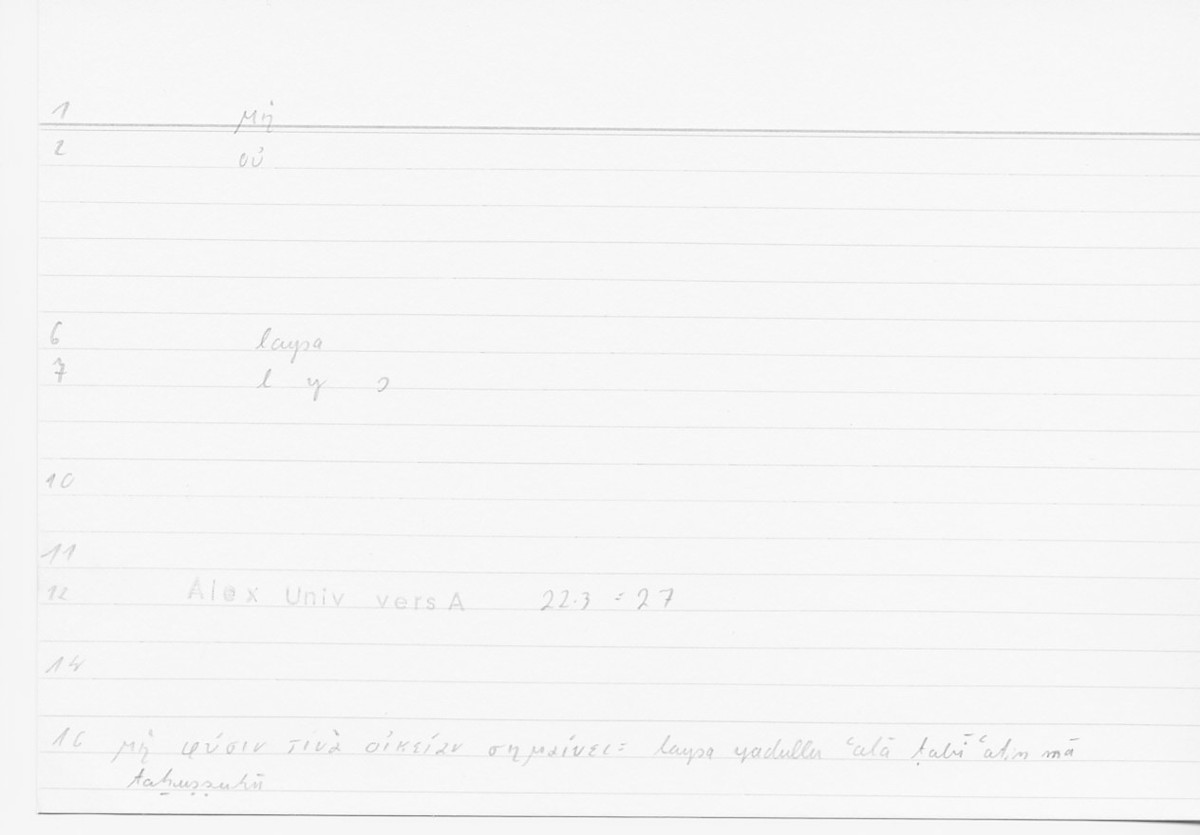 1 μὴ
2 οὐ
6 laysa
7 l y s
10
11
12 Alex Univ vers A 22.3 = 27
14
16 μὴ φύσιν τινὰ οἰκείαν σημαίνει = laysa yadullu ʿalā ṭabīʿatin mā
taḫuṣṣuhū